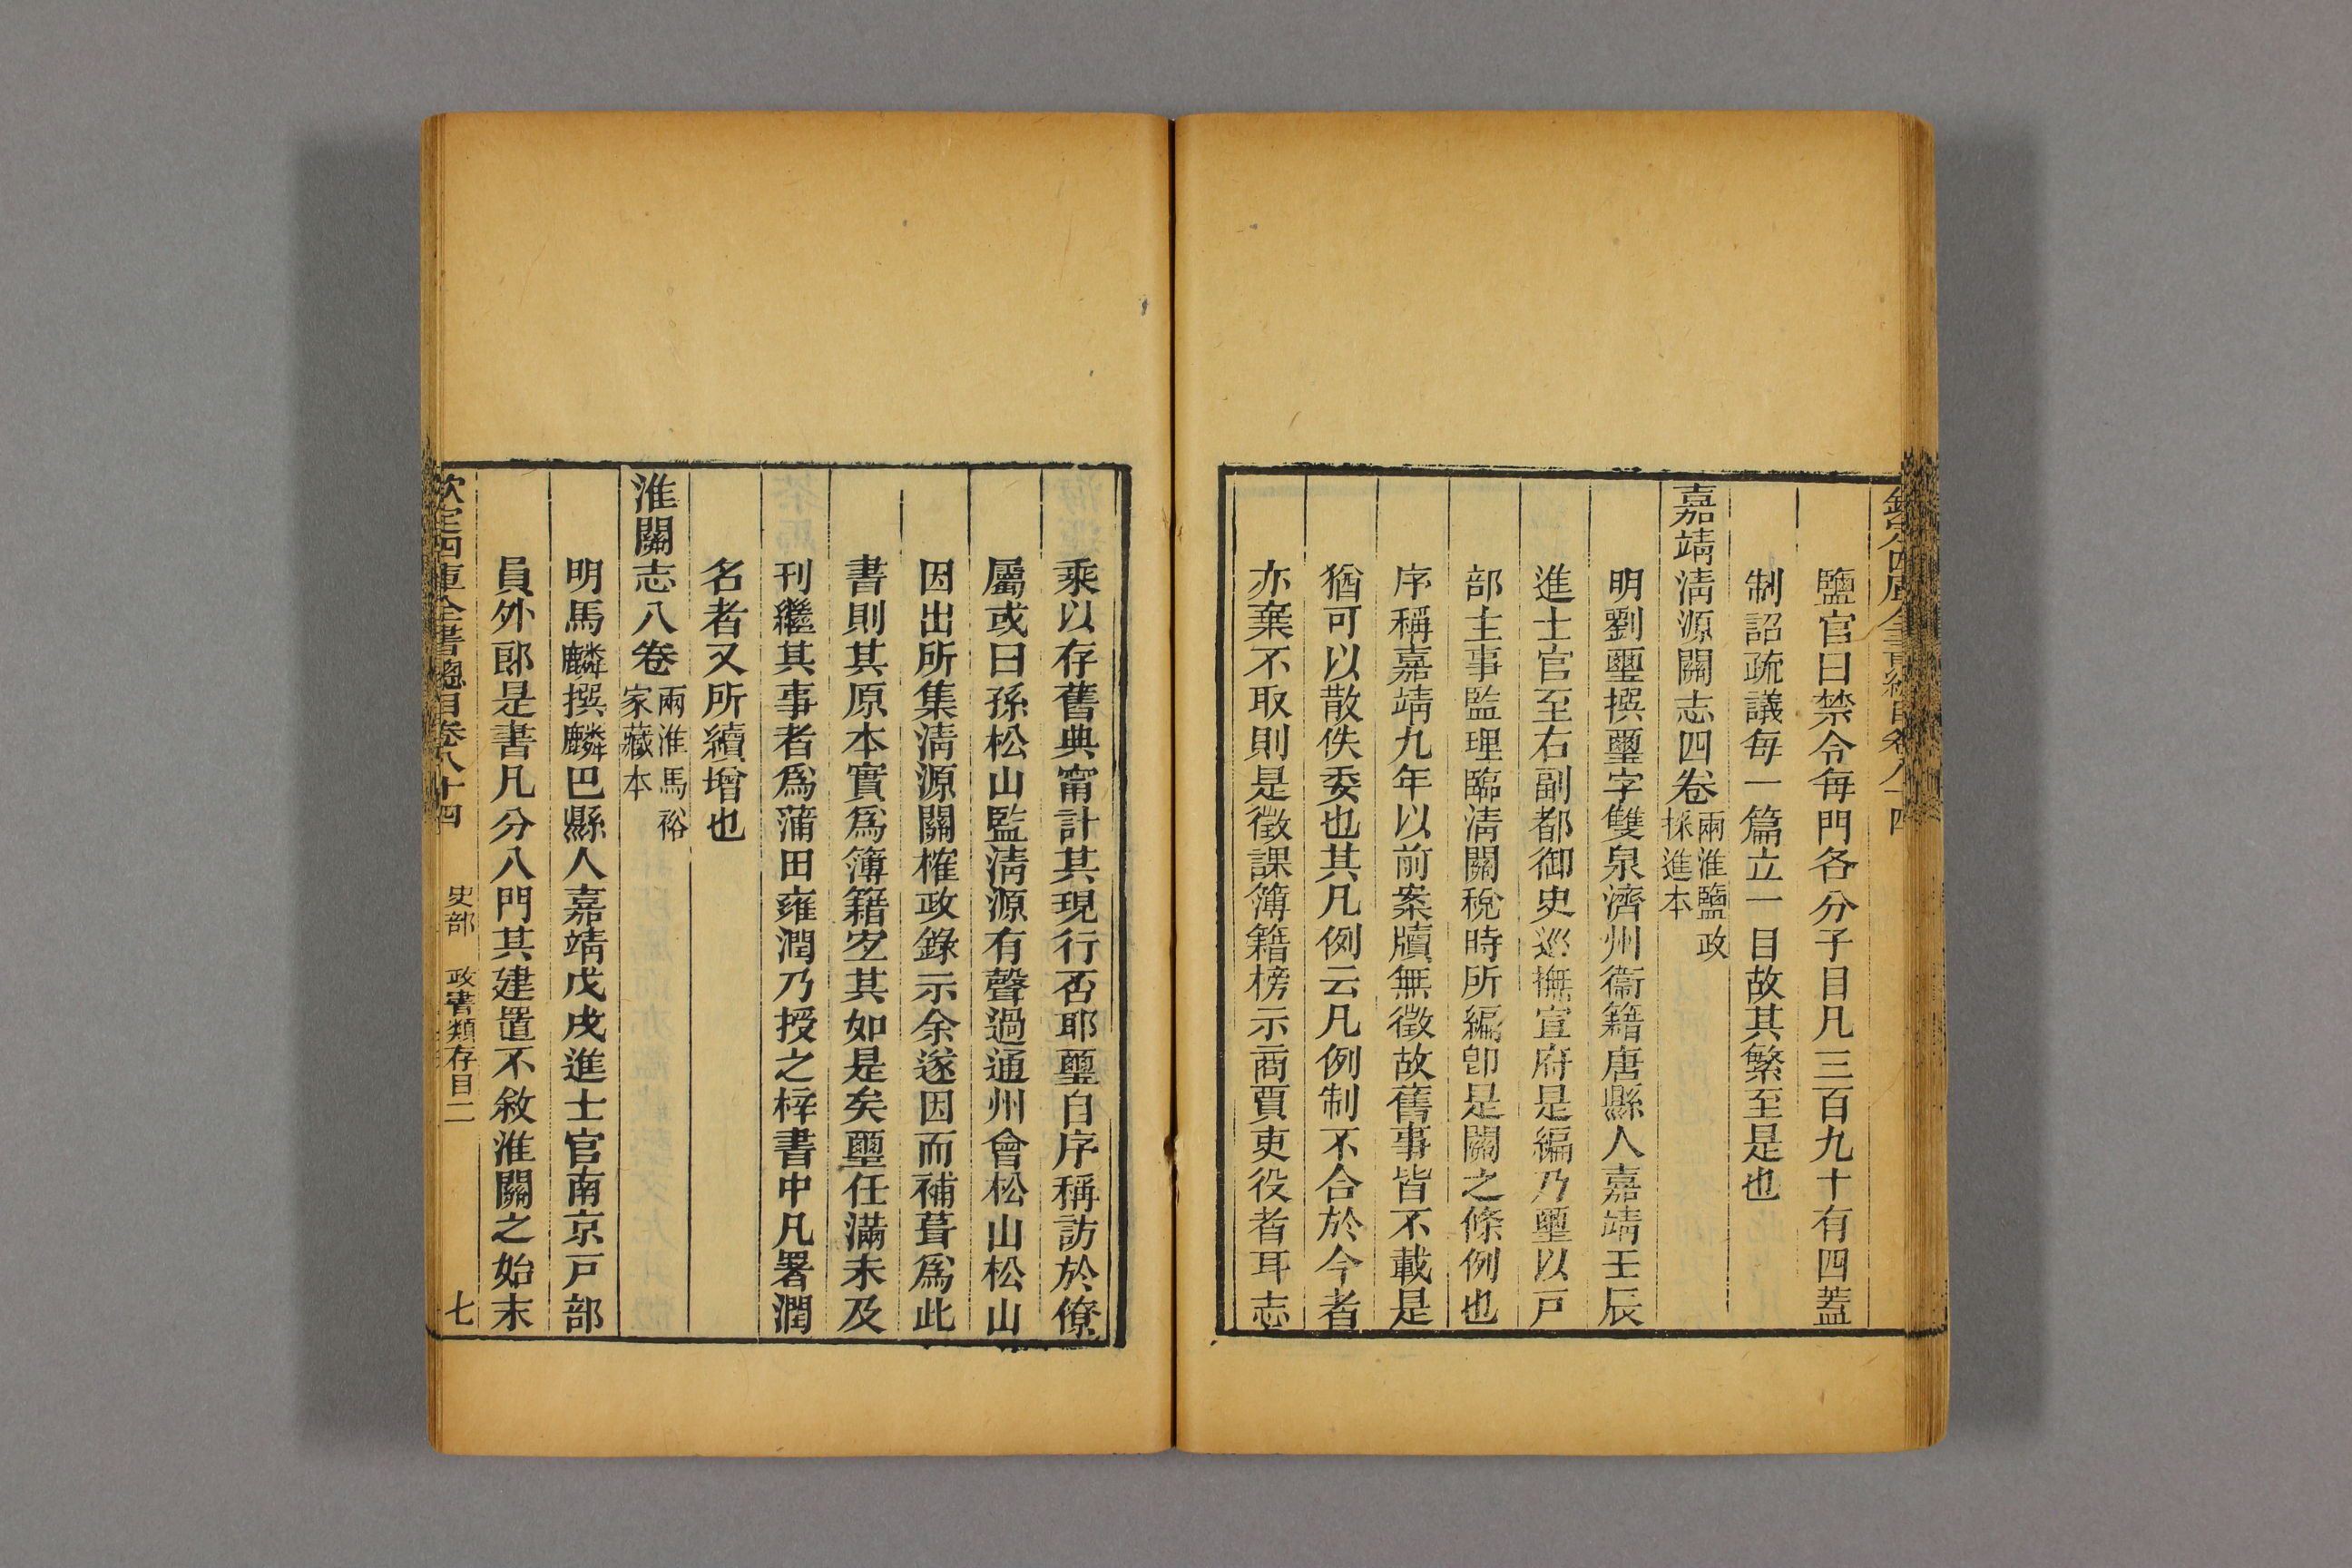 鹽官曰禁令每門各分子目凡三百九十有四蓋
制詔疏議每一篇立一目故其繁至是也
嘉靖淸源關志四卷兩淮鹽政採進本
明劉璽撰璽字雙泉濟州衞籍唐縣人嘉靖壬辰
進士官至右副都御史巡撫宣府是編乃璽以戸
部主事監理臨淸關稅時所編卽是關之條例也
序稱嘉靖九年以前案牘無徵故舊事皆不載是
猶可以散佚委也其凡例云凡例制不合於今者
亦棄不取則是徵課簿籍榜示商賈吏役者耳志
乘以存舊典甯計其現行否耶璽自序稱訪於僚
屬或曰孫松山監淸源有聲過通州會松山松山
因出所集淸源關榷政錄示余遂因而補葺爲此
書則其原本實爲簿籍宐其如是矣璽任滿未及
刊繼其事者爲蒲田雍潤乃授之梓書中凡署潤
名者又所續增也
淮關志八卷兩淮馬裕家藏本
明馬麟撰麟巴縣人嘉靖戊戌進士官南京戸部
員外郎是書凡分八門其建置不敘淮關之始末
欽定四庫全書總目卷八十四 史部 政書類存目二 七